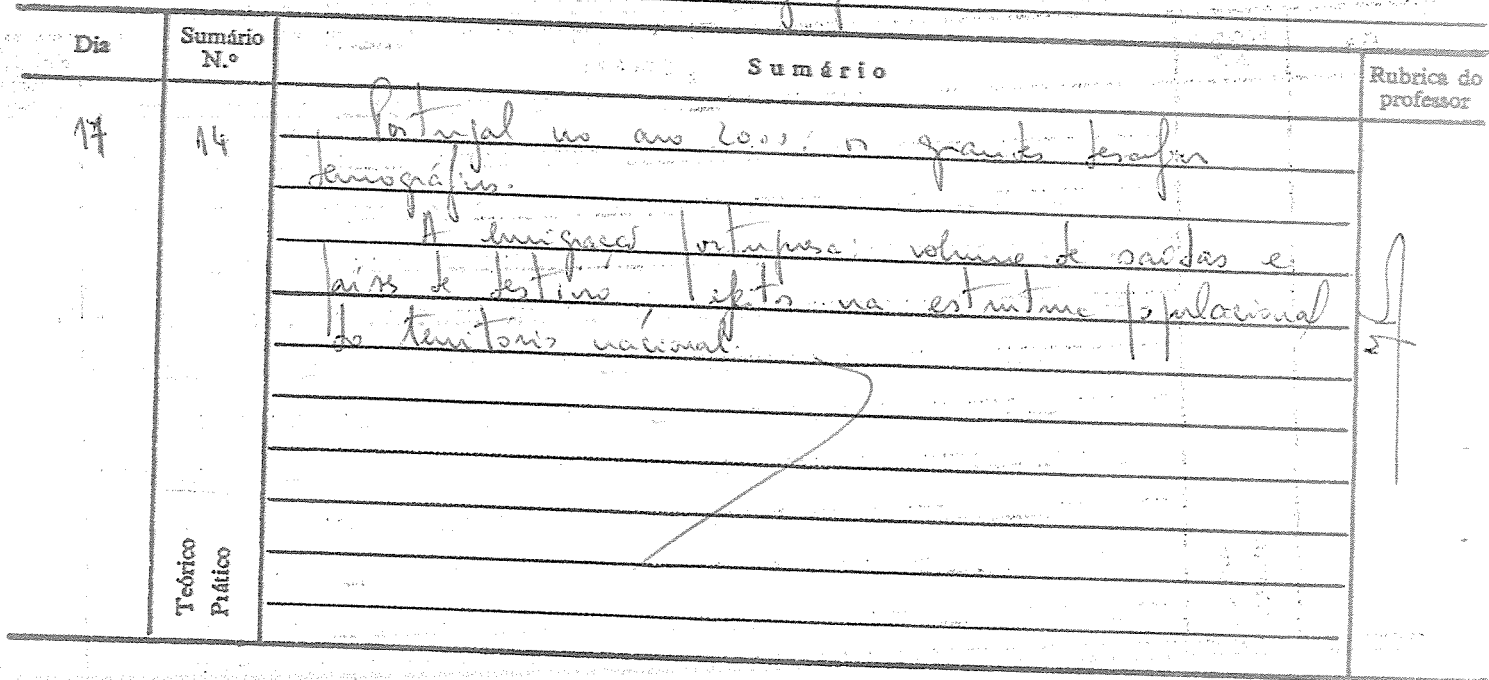 Dia
Sumário N.º
Sumário
Rubrica do professor
17
14
Portugal no ano 2000: os grandes desafios
demográficos.
A emigração portuguesa: volume de saídas e
países de destino. Efeitos na estrutura populacional
do território nacional.
Teórico
Prático